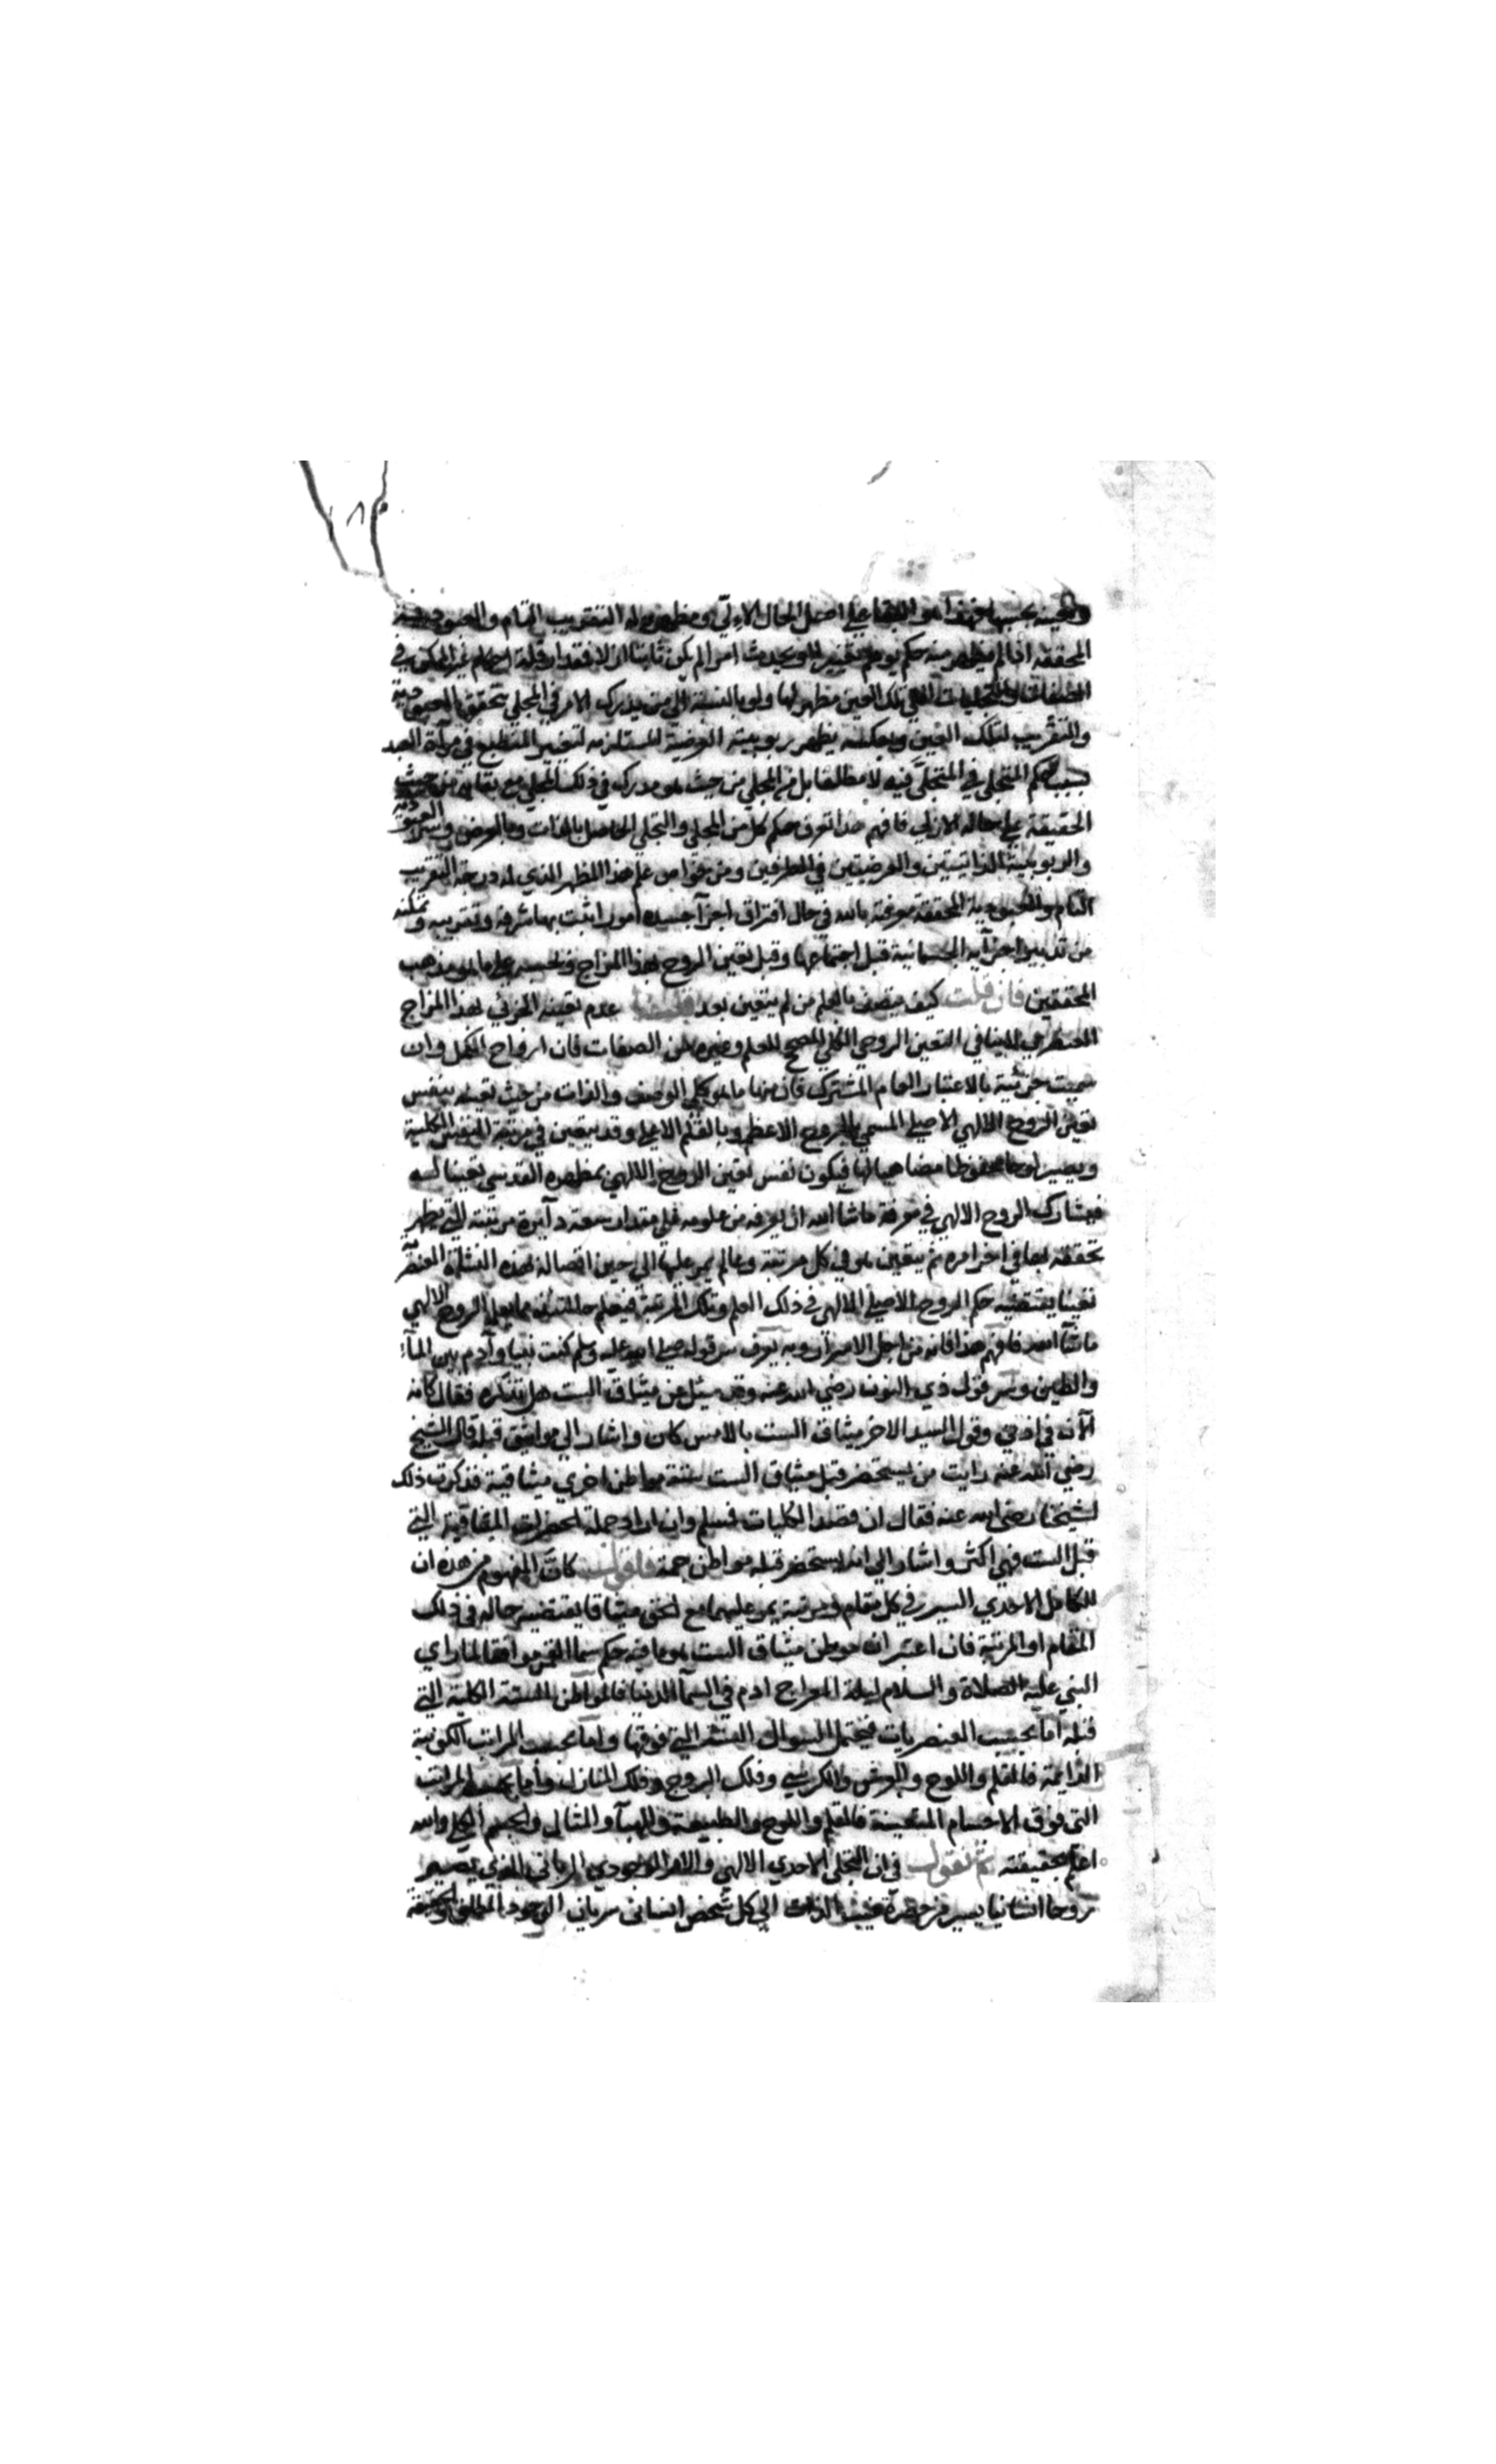 وتعينه بحسبها فهذا هو البقاء على اصل الحال الازلي ومظهره له التقريب التام والعبودية
المحققة اذا لم يظهر منه حكم يوهم تغييرا او يحدث امرا لم يكن ثابتا ازلا فقد ارقلة احكام غير الممكن في
الصفات والتجليات التي تلك العين مظهر لها ولو بالنسبة الى من يدرك الامر في المجلي تتحقق بالعبودية
والتقريب لتلك العين وبعكسه يظهر ربوبيته العرضية المستلزمه لتغيير المنطبع في مرآة العبد
بسبب حكم المتجلي في المتجلى فيه لا مطلقا بل في المجلي من حيث هو مدرك في ذلك المجلي مع بقائه من حيث
الحقيقة على حاله الازلي فافهم هذا تعرف حكم كل من المجلي والتجلي الحاصل بالذات وبالعرض وسر العبودية
والربوبية الذاتيتين والعرضيتين في الطرفين ومن خواص علم هذا المظهر الذي له درجة التقريب
التام والعبودية المحققة معرفته بالله في حال افتراق اجزآ جسده امور اثبت بها شرفه وتقريبه وتمكنه
من تدبير اجزآيه الجسمانية قبل اجتماعها وقبل تعين الروح بهذا المزاج وبحسبه على ما هو مذهب
المحققين فان قلت كيف يتصف بالعلم من لم يتعين بعد قلنا عدم تعينه الجزئي لهذا المزاج
العنصري لا ينافي التعين الروحي الكلي المصحح للعلم وغيره من الصفات فان ارواح الكمل وان
سميت جزئية بالاعتبار العام المشترك فان منها ما هو كلي الوصف والذات من حيث تعينه بنفس
تعين الروح الالهي الاصلي المسمي بالروح الاعظم وبالقلم الاعلى وقد يتعين في مرتبة النفس الكلية
ويصير لوحا محفوظا مضاهيا لها فيكون نفس تعين الروح الالهي بمظهره القدسي تعينا له
فيشارك الروح الالهي في معرفة ما شآ الله ان يعرفه من علومه على مقدار سعة دآئرة مرتبته التي يظهر
تحققه بها في اخر امره ثم يتعين هو في كل مرتبة وعالم يمر عليها الى حين اتصاله بهذه النشأة العنصرية
تعينا يقتضيه حكم الروح الاصلي الالهي في ذلك العلم وتلك المرتبة فيعلم حالتئذ مما يعلم الروح الالهي
ما شآ الله فافهم هذا فانه من اجل الاسرار وبه يعرف سر قوله صلى الله عليه وسلم كنت نبيا وآدم بين المآء
والطين وسر قول ذي النون رضي الله عنه وقد سئل عن ميثاق الست هل تذكره فقال كانه
الآن في اذني وقول السيد الاخر ميثاق الست بالامس كان واشار الى مواثيق قبله قال الشيخ
رضي الله عنه رايت من يستحضر قبل ميثاق الست ستة مواطن اخري ميثاقية فذكرت ذلك
لشيخنا رضي الله عنه فقال ان قصد الكليات فسلم وان اراد جملة الحضرات الميثاقية التي
قبل الست فهي اكثر واشار الى انه يستحضر قبله مواطن جمة فاقول كان المفهوم من هذه ان
للكامل الاحدي السير في كل مقام ومرتبة يمر عليهما مع الحق ميثاقا يقتضيه حاله في ذلك
المقام او المرتبة فان اعتبر ان موطن ميثاق الست هو ما فيه حكم سماء القمر موافقا لما راي
النبي عليه الصلاة والسلام ليلة المعراج ادم في السمآ الدنيا فالمواطن الستة الكلية التي
قبله اما بحسب العنصريات فيحتمل السموات الستة التي فوقها واما بحسب المراتب الكونية
الدائمة فالقلم واللوح والعرش والكرسي وفلك البروج وفلك المنازل واما بحسب المراتب
التى فوق الاجسام المتعينة فالقلم واللوح والطبيعة والهبآ والمثال والجسم الكل والله
اعلم بحقيقته ثم نقول في ان التجلي الاحدي الالهي والامر الوجودي الرباني الذي يصير
روحا انسانيا يسير من حضرة غيب الذات الى كل شخص انساني سريان الوجود المطلق والحقيقة